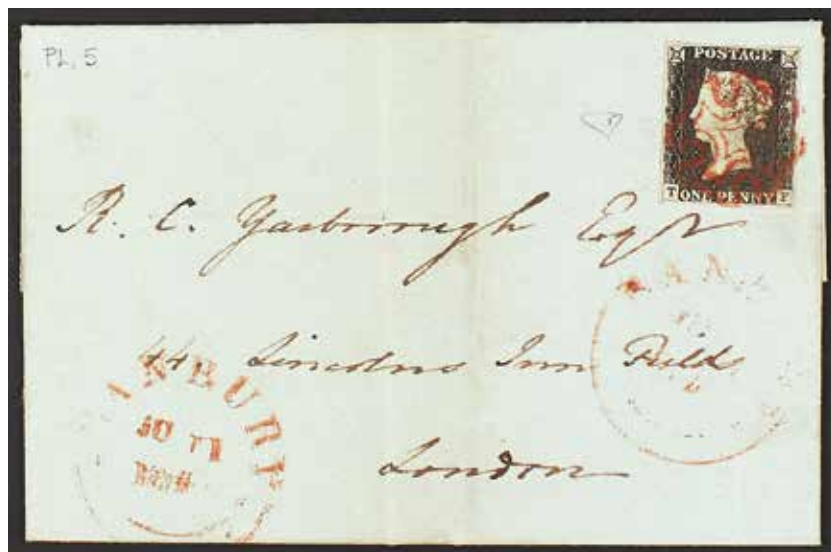 PL. 5
POSTAGE
T ONE PENNY F
R. C. Yarborough Esqr
44 Lincolns Inn Fields
London